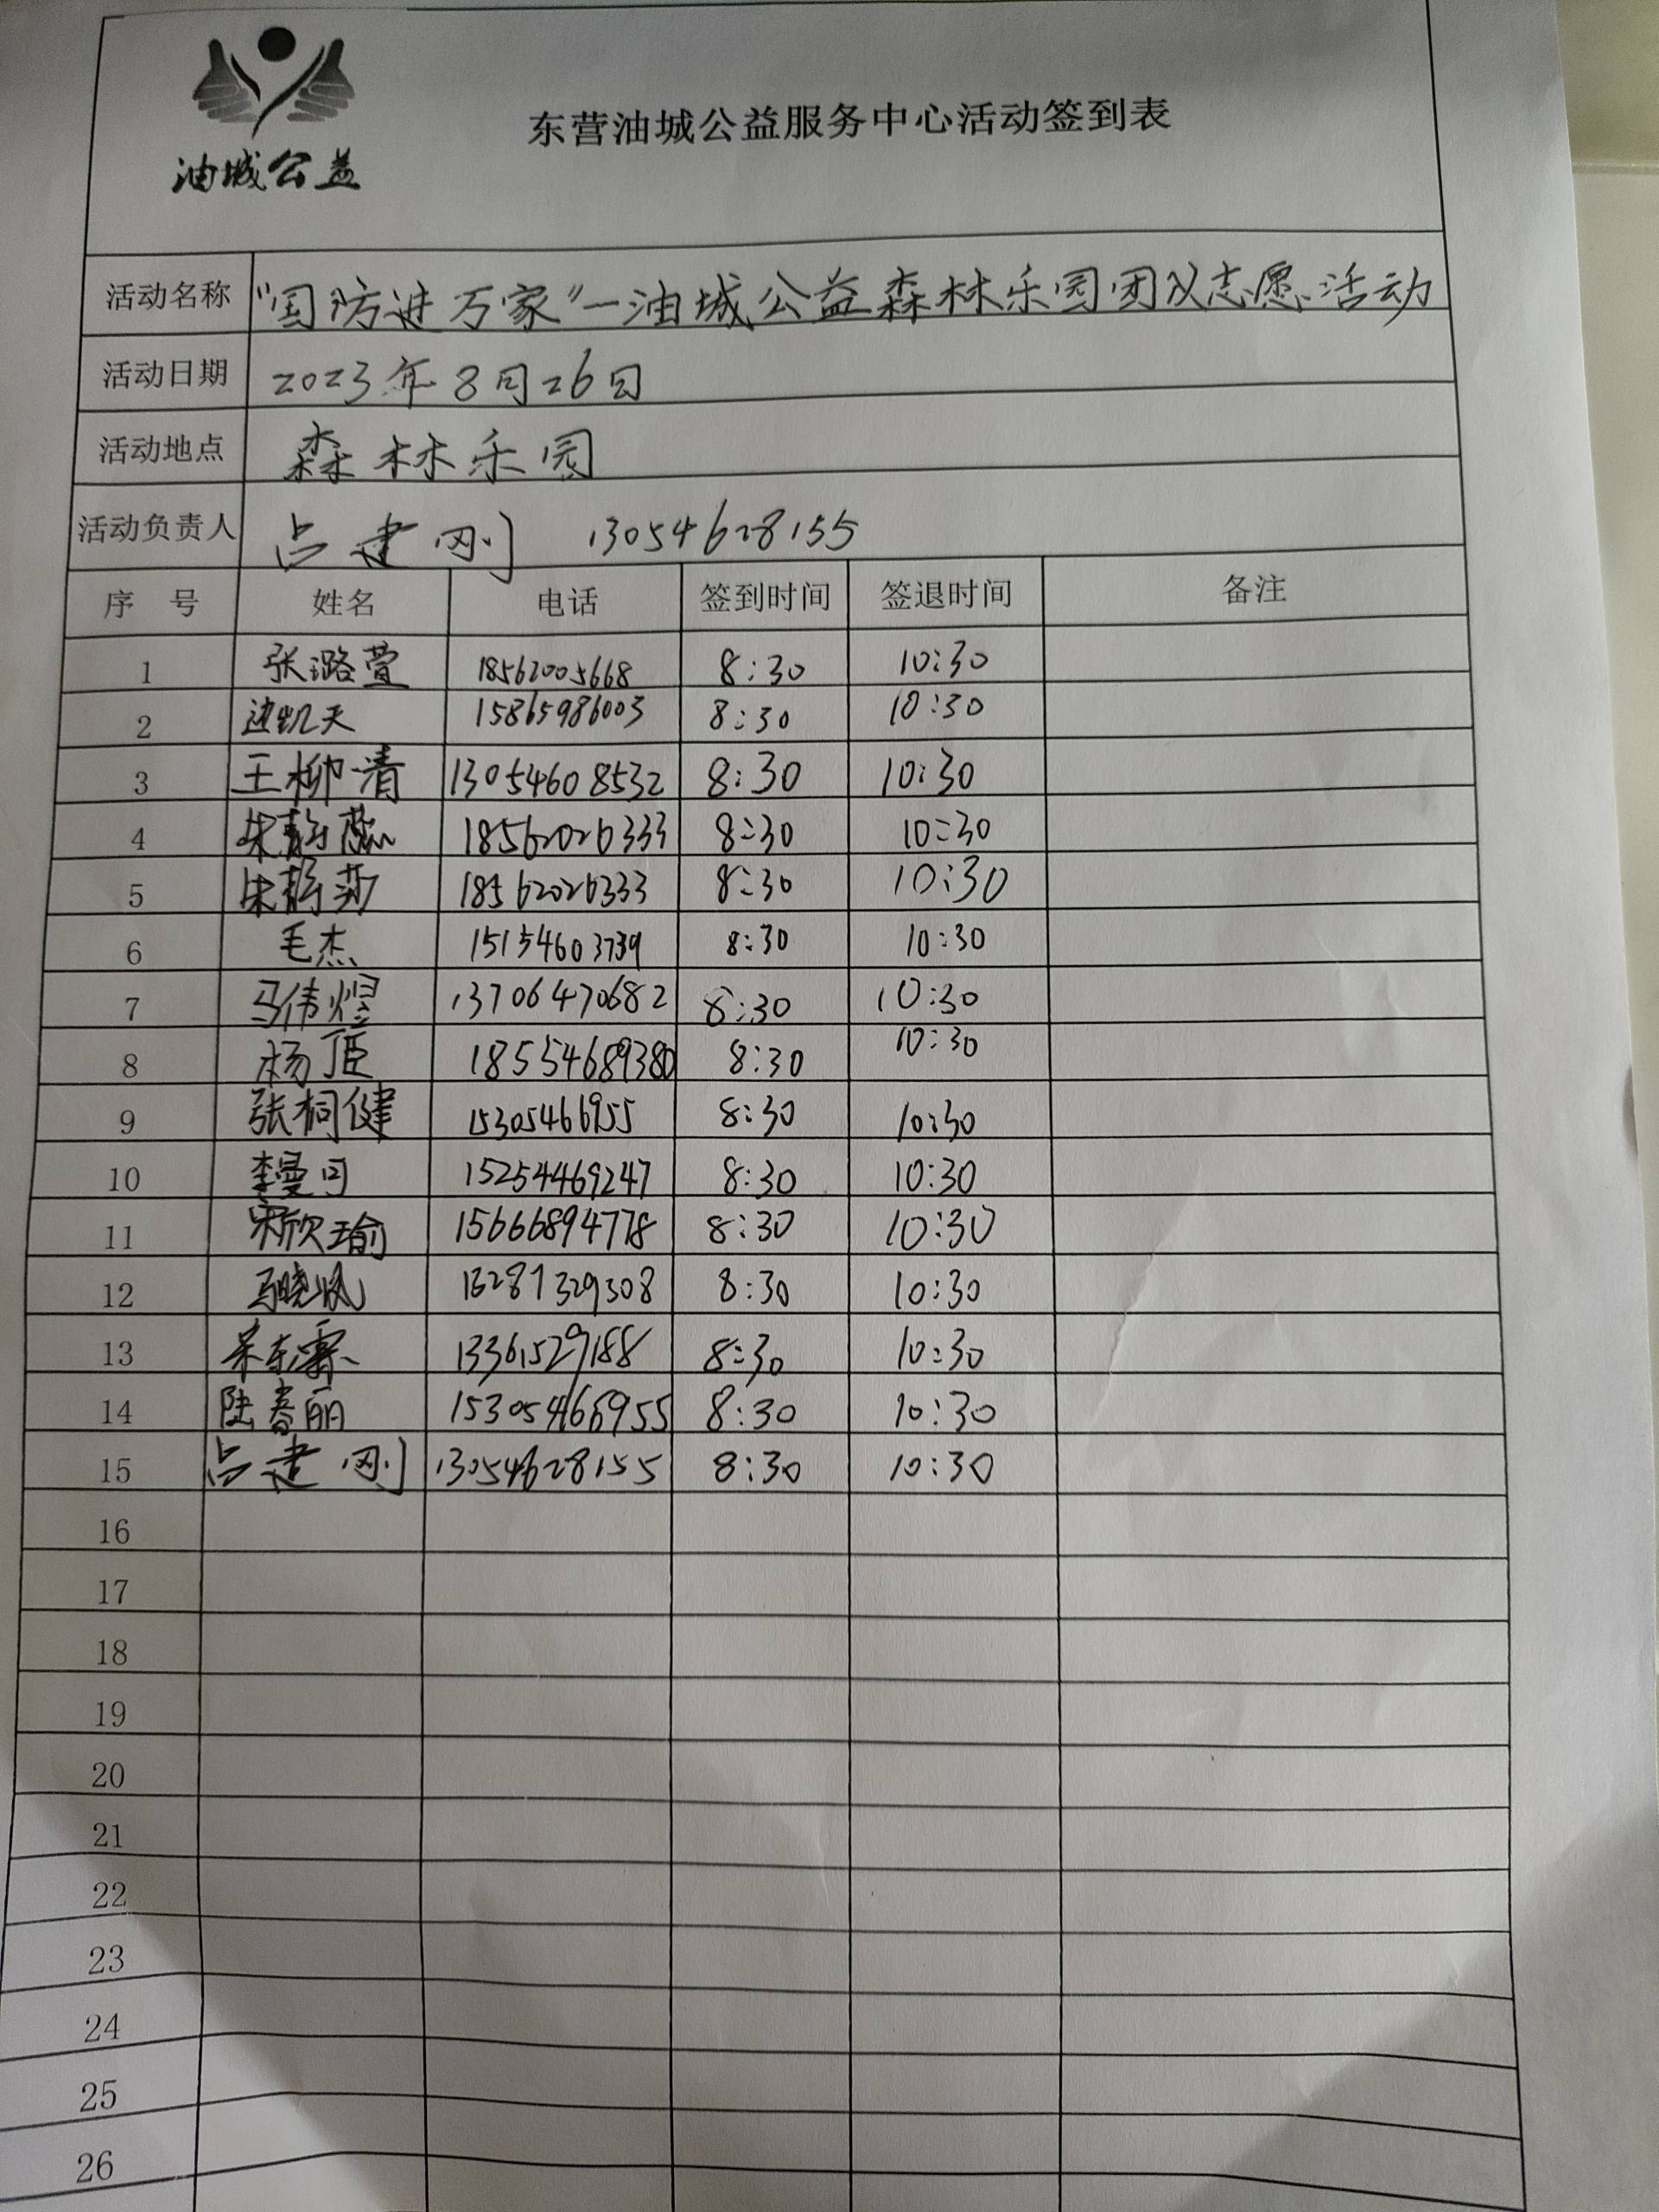 油城公益
东营油城公益服务中心活动签到表
活动名称 "国防进万家"—油城公益森林乐园团队志愿活动
活动日期 2023年8月26日
活动地点 森林乐园
活动负责人 占建刚 13054628155
序 号 姓名 电话 签到时间 签退时间 备注
1 张潞萱 18562005668 8:30 10:30
2 边凯天 15865986003 8:30 10:30
3 王柳清 13054608532 8:30 10:30
4 朱静蕊 18562026333 8:30 10:30
5 朱静莎 18562026333 8:30 10:30
6 毛杰 15154603739 8:30 10:30
7 马伟煜 13706470682 8:30 10:30
8 杨 18554689380 8:30 10:30
9 张桐健 15305466955 8:30 10:30
10 李曼司 15254469247 8:30 10:30
11 宋欣瑜 15666894778 8:30 10:30
12 马晓帆 8:30 10:30
13 13361529188 8:30 10:30
14 陆春丽 15305466955 8:30 10:30
15 占建刚 13054628155 8:30 10:30
16
17
18
19
20
21
22
23
24
25
26